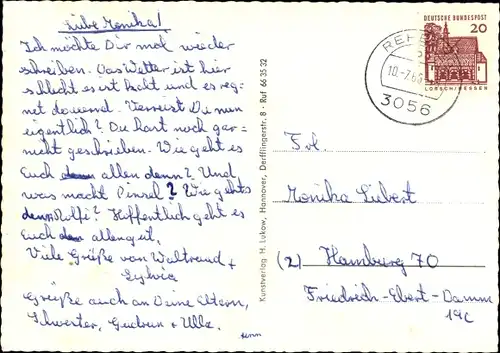 Liebe Monika!
Ich möchte Dir mal wieder
schreiben. Das Wetter ist hier
schlecht es ist kalt und es reg-
net dauernd. Verreist Du nun
eigentlich? Du hast noch gar-
nicht geschrieben. Wie geht es
Euch allen denn? Und
was macht Pinsel? Wie gehts
denn Rolfi? Hoffentlich geht es
Euch allen gut.
Viele Grüße von Waltraud +
Sylvia
Grüße auch an Deine Eltern,
Schwester, Gudrun + Ulla.
Kunstverlag H. Lukow, Hannover, Derfflingerstr. 8 · Ruf 66 35 32
DEUTSCHE BUNDESPOST
20
LORSCH/HESSEN
10.-7.66
3056
Frl.
Monika Siebert
(2) Hamburg 70
Friedrich-Ebert-Damm
19c